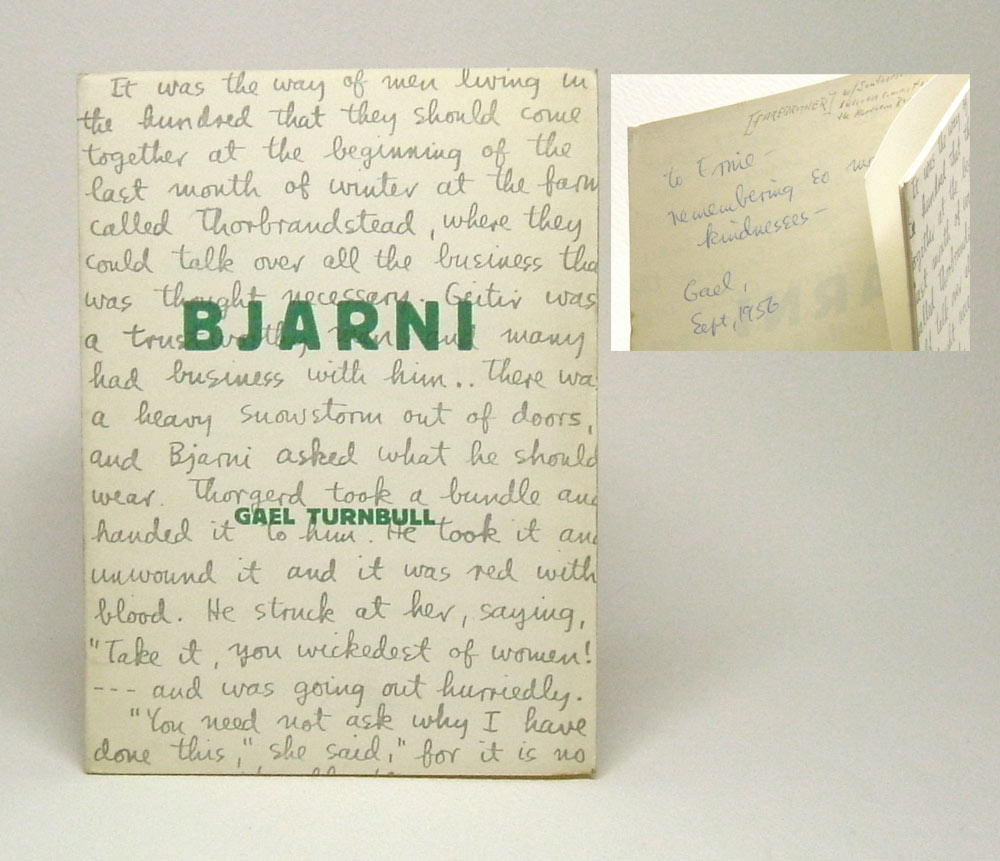 It was the way of men living in
the hundred that they should come
together at the beginning of the
last month of winter at the farm
called Thorbrandstead, where they
could talk over all the business tha
was thought necessary. Geitir was
BJARNI
a many
had business with him.. There wa
a heavy snowstorm out of doors,
and Bjarni asked what he should
wear. Thorgerd took a bundle and
GAEL TURNBULL
handed it to him. He took it and
unwound it and it was red with
blood. He struck at her, saying,
"Take it, you wickedest of women!
--- and was going out hurriedly.
"You need not ask why I have
done this," she said, "for it is no
to Ernie –
remembering so
kindnesses –
Gael,
Sept, 1956